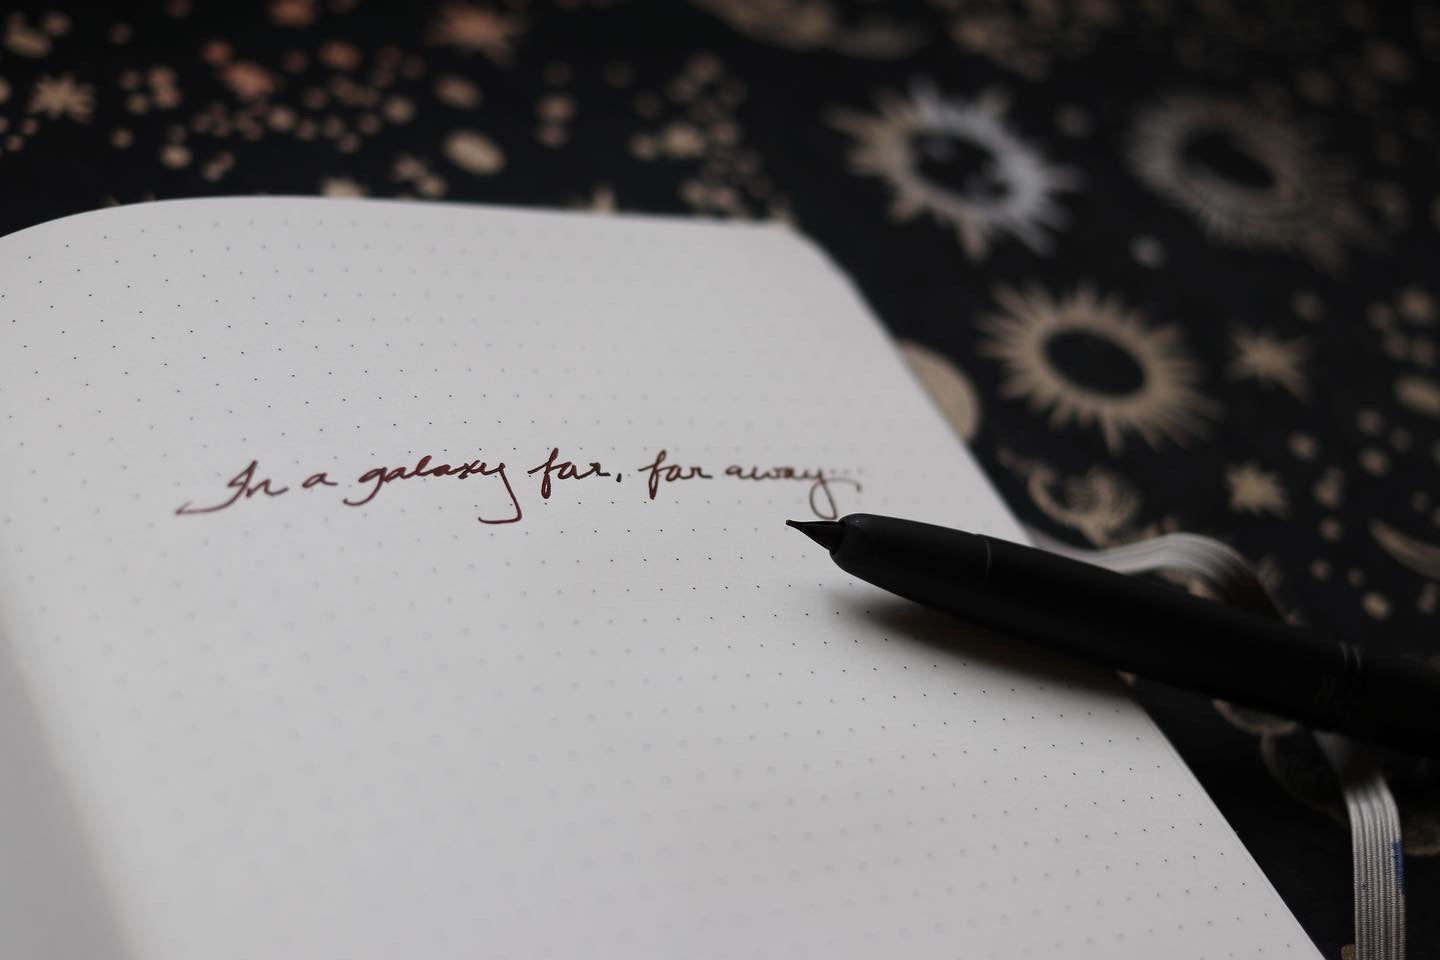 In a galaxy far, far away...